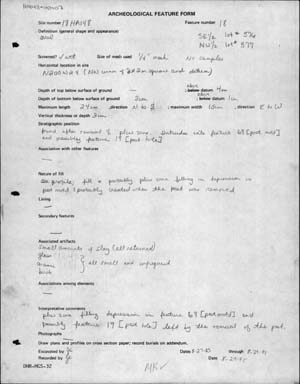 ARCHEOLOGICAL FEATURE FORM
Site number 18HA148 Feature number 18
Definition (general shape and appearance)
SE 1/2 lot # 576
NW 1/2 lot # 577
Screened? Size of mesh used 1/4" mesh No samples
Horizontal location in site
N200N24 (NW corner of 2x2m square and datum)
Depth of top below surface of ground above
; below datum 4cm
Depth of bottom below surface of ground 3cm ; below datum 1cm
Maximum length 24cm direction N to S ; maximum width 10cm direction E to W
Vertical thickness or depth 3cm
Stratigraphic position
found after removal of plow zone. Intrudes into feature 68 [post mold]
and possibly feature 19 [post hole]
Association with other features
Nature of fill
See profile; fill is probably plow zone filling in depression in
post mold (probably created when the post was removed
Lining
Secondary features
Associated artifacts
Small amounts of slag (all returned)
glass
brick
all small and
Associations among elements
Interpretive comments
plow zone filling depression in feature 68 [post mold] and
possibly feature 19 [post hole] left by the removal of the post.
Photographs
Draw plans and profiles on cross section paper; record burials on addendum.
Excavated by
Recorded by
Dates 8-27-85 through 8-29-85
DNR-MGS-32